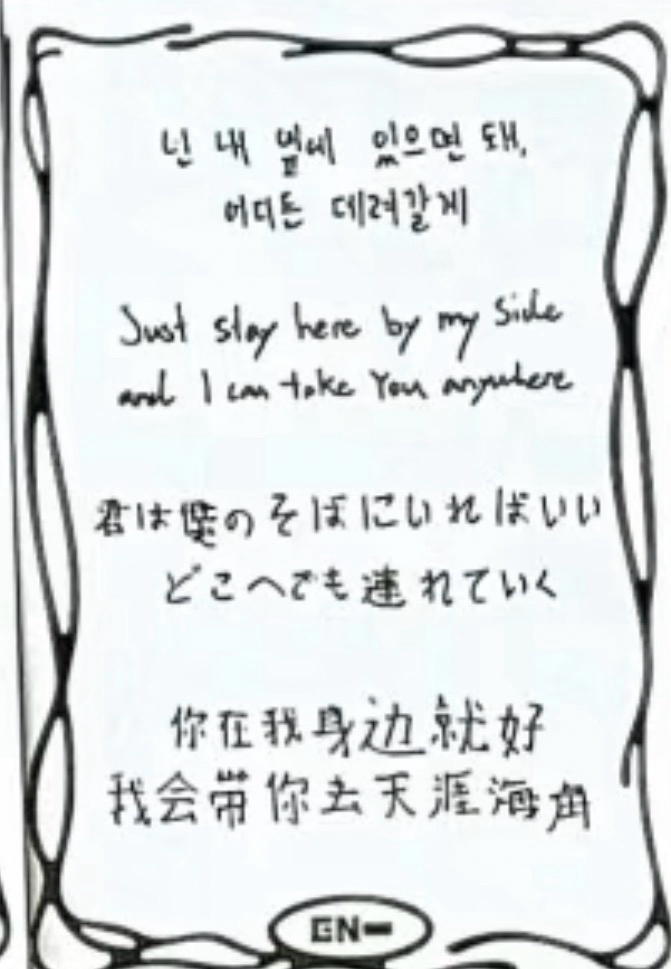 넌 내 옆에 있으면 돼,
어디든 데려갈게
Just stay here by my side
and I can take You anywhere
君は僕のそばにいればいい
どこへでも連れていく
你在我身边就好
我会带你去天涯海角
EN-